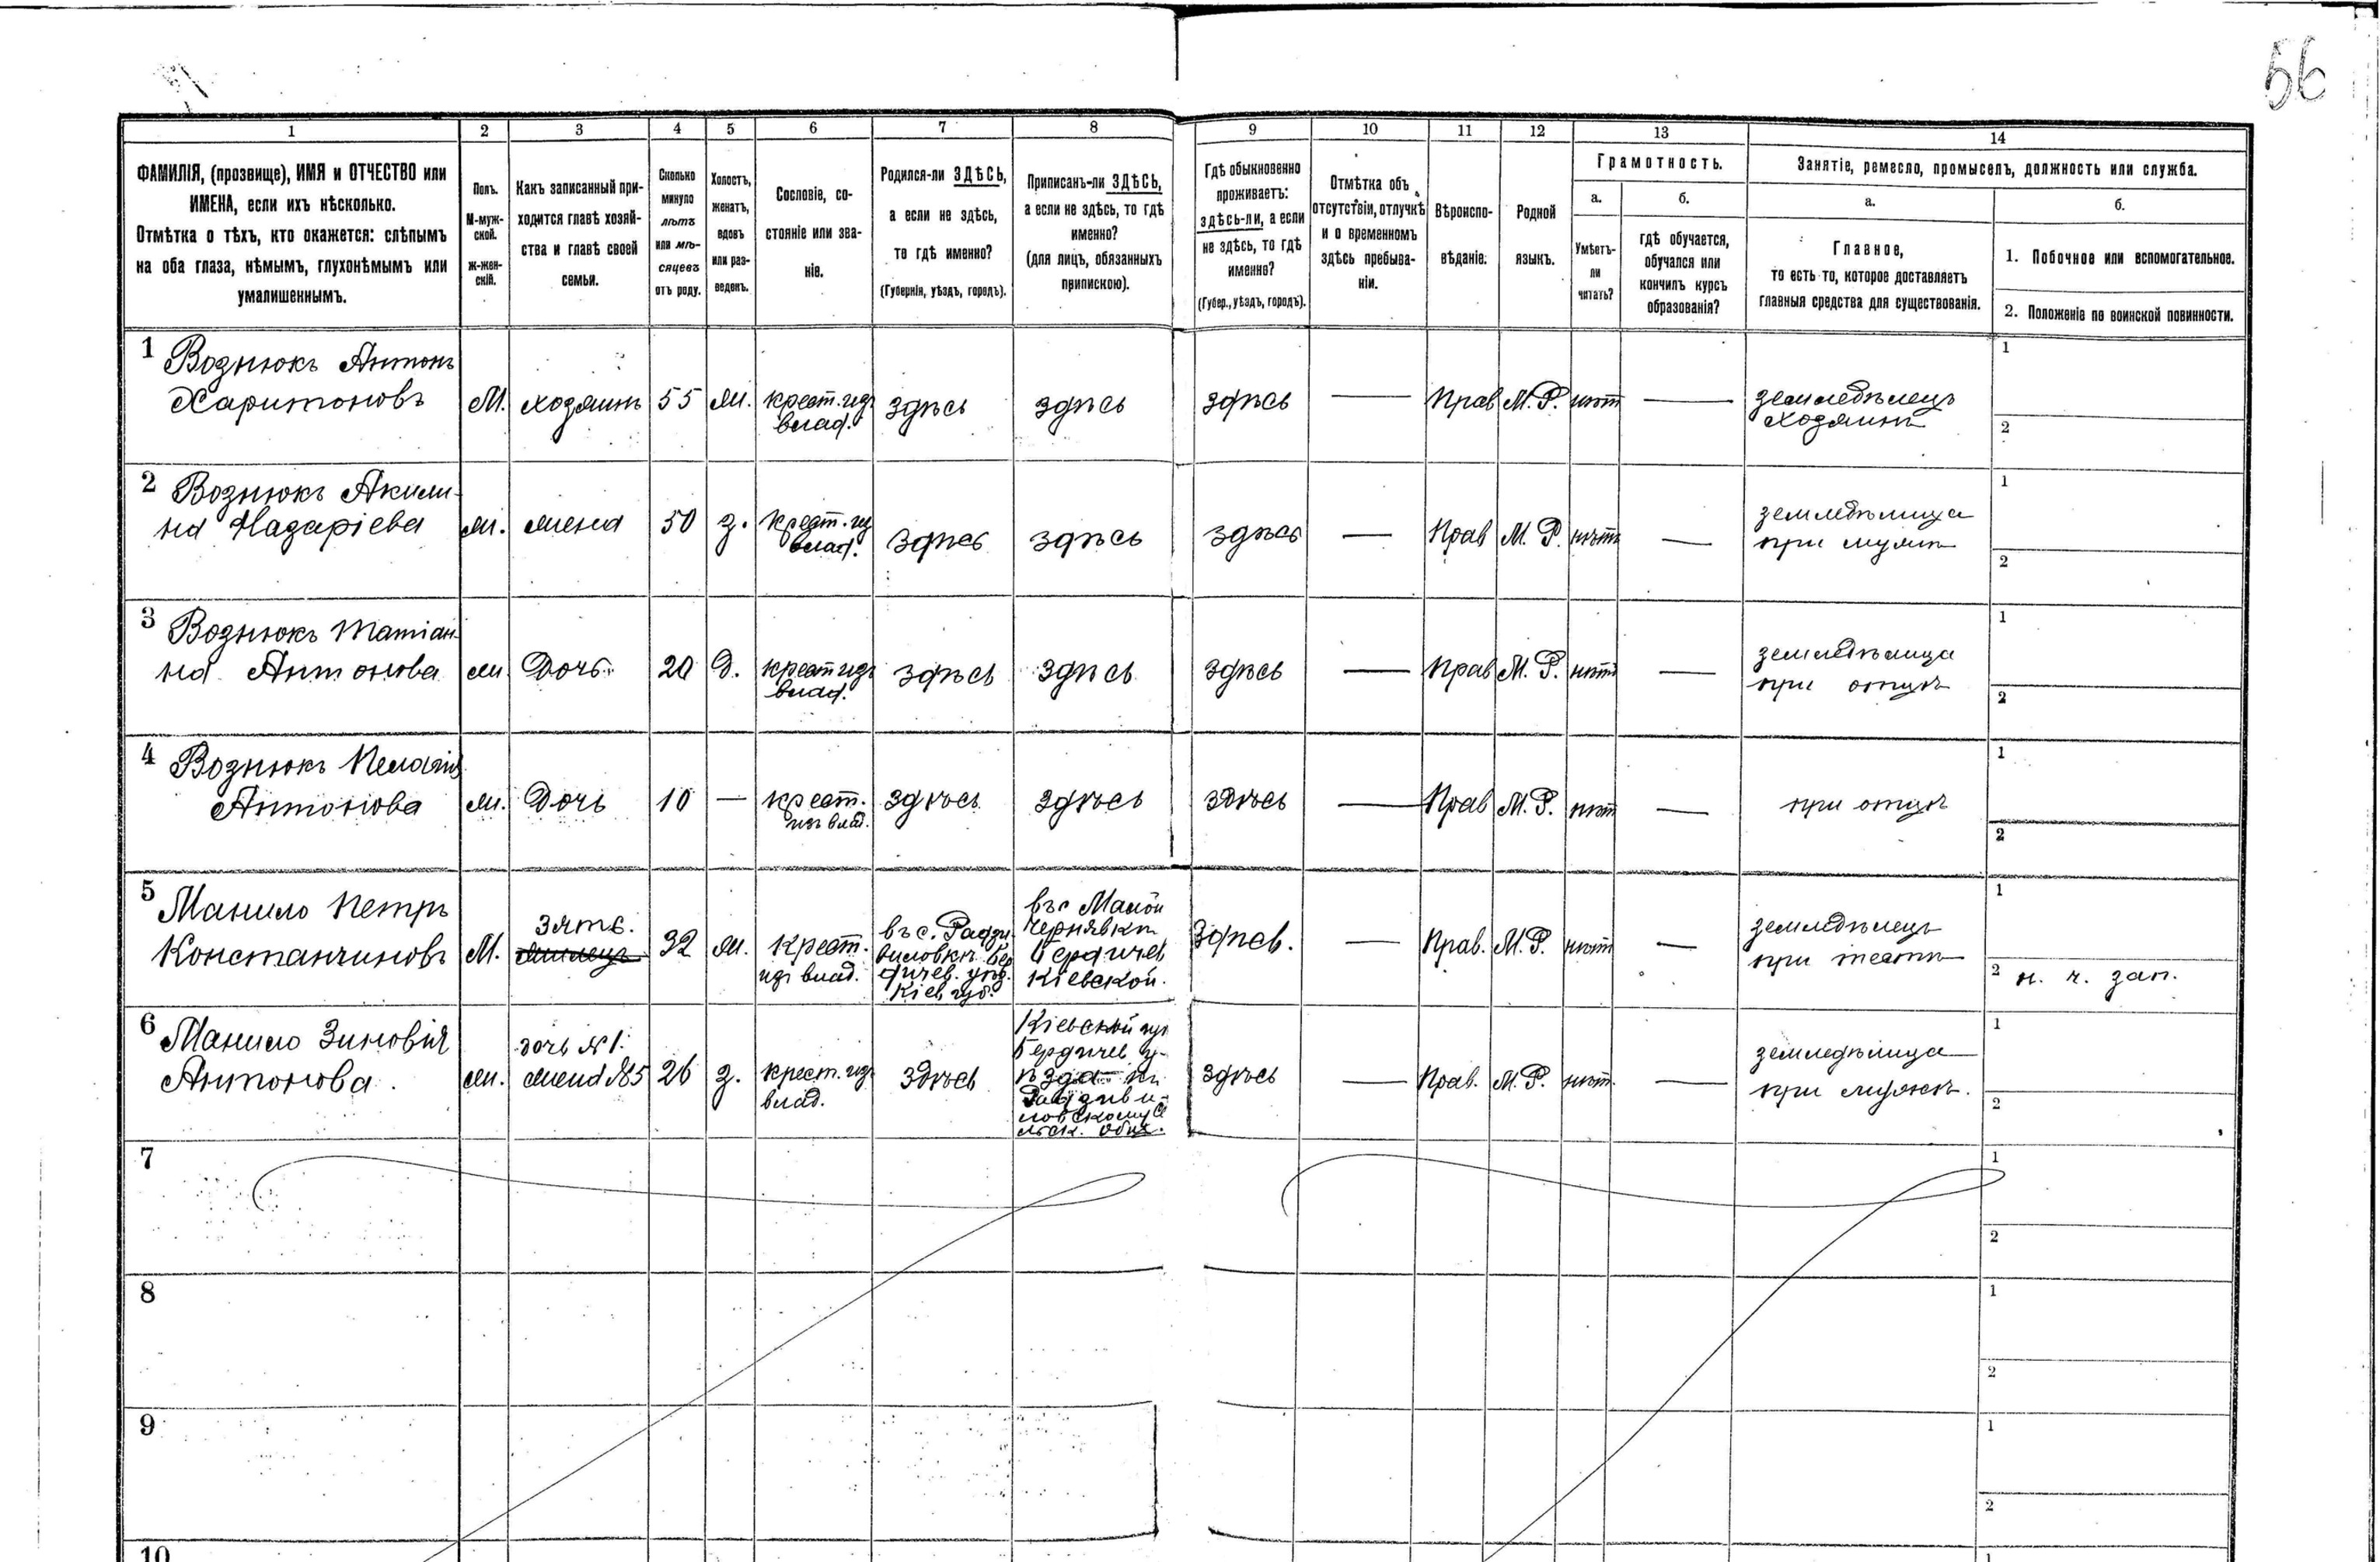 56
1
2
3
4
5
6
7
8
9
10
11
12
13
14
ФАМИЛІЯ, (прозвище), ИМЯ и ОТЧЕСТВО или
ИМЕНА, если ихъ нѣсколько.
Отмѣтка о тѣхъ, кто окажется: слѣпымъ
на оба глаза, нѣмымъ, глухонѣмымъ или
умалишеннымъ.
Полъ.
М-муж-
ской.
ж-жен-
скій.
Какъ записанный при-
ходится главѣ хозяй-
ства и главѣ своей
семьи.
Сколько
минуло
лѣтъ
или мѣ-
сяцевъ
отъ роду.
Холостъ,
женатъ,
вдовъ
или раз-
веденъ.
Сословіе, со-
стояніе или зва-
ніе.
Родился-ли ЗДѢСЬ,
а если не здѣсь,
то гдѣ именно?
(Губернія, уѣздъ, городъ).
Приписанъ-ли ЗДѢСЬ,
а если не здѣсь, то гдѣ
именно?
(для лицъ, обязанныхъ
припискою).
Гдѣ обыкновенно
проживаетъ:
здѣсь-ли, а если
не здѣсь, то гдѣ
именно?
(Губер., уѣздъ, городъ).
Отмѣтка объ
отсутствіи, отлучкѣ
и о временномъ
здѣсь пребыва-
ніи.
Вѣроиспо-
вѣданіе.
Родной
языкъ.
Грамотность.
а.
Умѣетъ-
ли
читать?
б.
гдѣ обучается,
обучался или
кончилъ курсъ
образованія?
Занятіе, ремесло, промыселъ, должность или служба.
а.
Главное,
то есть то, которое доставляетъ
главныя средства для существованія.
б.
1. Побочное или вспомогательное.
2. Положеніе по воинской повинности.
1 Вознюкъ Антонъ
Харитоновъ
М.
хозяинъ
55
ж.
крест. изъ
влад.
здѣсь
здѣсь
здѣсь
—
Прав
М. Р.
нѣтъ
—
земледѣлецъ
хозяинъ
1
2
2 Вознюкъ Акили-
на Назаріева
ж.
жена
50
з.
крест. из
влад.
здѣсь
здѣсь
здѣсь
—
Прав
М. Р.
нѣтъ
—
земледѣлица
при мужѣ
1
2
3 Вознюкъ Татіан-
на Антонова
ж
Дочь
20
д.
крест изъ
влад.
здѣсь
здѣсь
здѣсь
—
Прав
М. Р.
нѣтъ
—
земледѣлица
при отцѣ
1
2
4 Вознюкъ Пелагія
Антонова
ж.
Дочь
10
—
крест.
изъ влад.
здѣсь
здѣсь
здѣсь
—
Прав
М. Р.
нѣт
—
при отцѣ
1
2
5 Манило Петръ
Константиновъ
М.
Зять.
32
ж.
Крест.
изъ влад.
въ с. Радзи-
виловкѣ Бер
дичев. уѣзд.
Кіев губ.
въ с Малой
Чернявкѣ
Бердичев
Кіевской.
Здѣсь.
—
Прав.
М. Р.
нѣт
—
земледѣлецъ
при тестѣ
1
2 н. ч. зап.
6 Манило Зиновія
Антонова.
ж.
дочь №1.
жена №5
26
з.
крест. изъ
влад.
здѣсь
Кіевской гу
Бердичев у-
ѣзда къ
Радзиви-
ловскому с
ельск. общ.
здѣсь
—
Прав.
М. Р.
нѣт.
—
земледѣлица
при мужѣ.
1
2
7
1
2
8
1
2
9
1
2
10
1